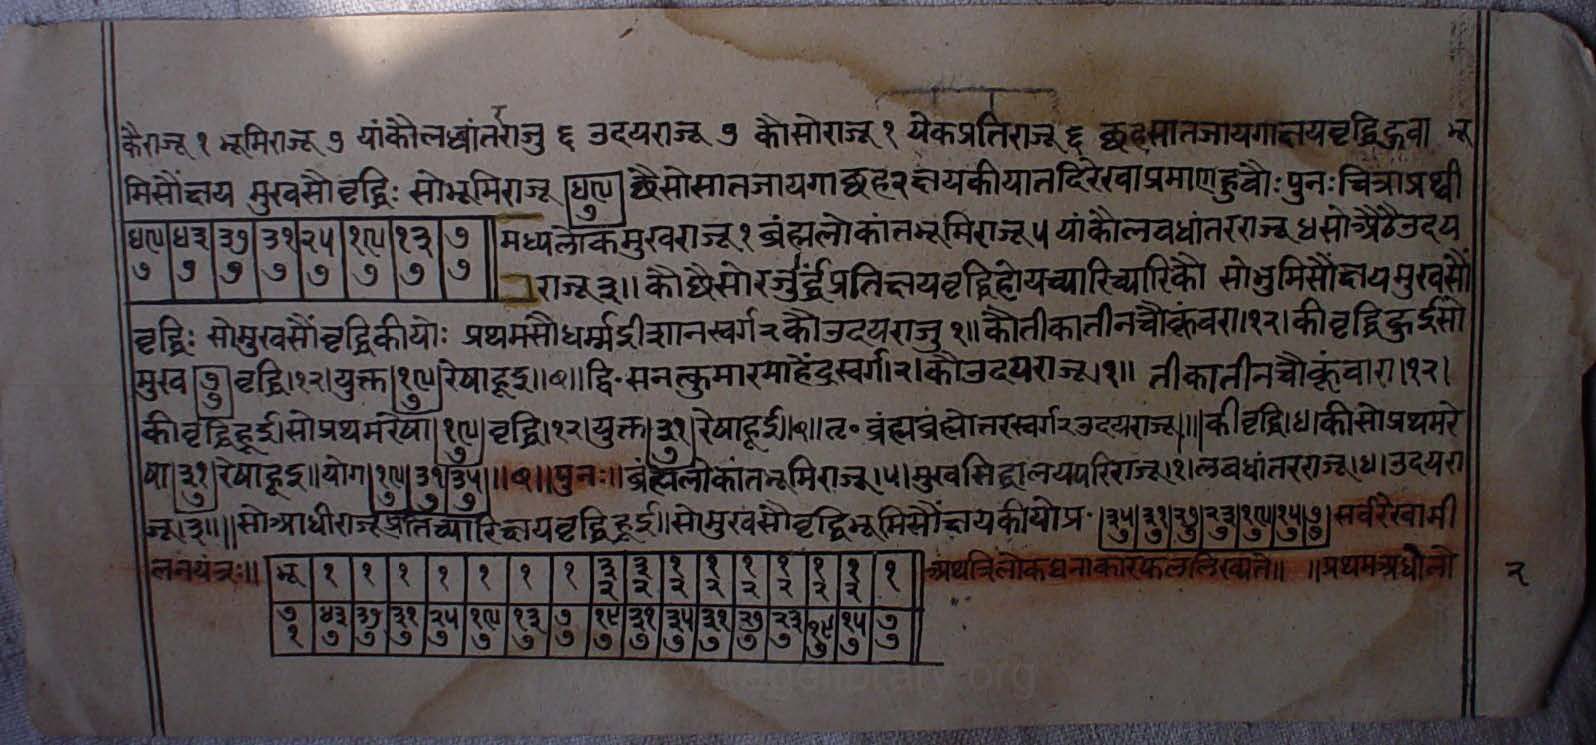 कैराजू १ भूमिराजू ७ यांकौलब्धांतरराजु ६ उदयराजू ७ कौसोराजू १ येकप्रतिराजू ६ कूहसातजायगाक्षयवृद्धिहुवा भू
मिसौंक्षय मुखसौवृद्धिः सोभूमिराजू ४९ ७ छैसोसातजायगा छह२क्षयकीयातदिरेखाप्रमाणहुवौः पुनः चित्राप्रथ्वी
४९ ४३ ३७ ३१ २५ १९ १३ ७ मध्यलोकमुखराजू १ ब्रंह्मलोकांतभूमिराजू ५ यांकौलवधांतरराजू ४ सोअैठैउदय
७ ७ ७ ७ ७ ७ ७ ७ राजू ३॥ कौछैसोरर्जुर्द्धप्रतिक्षयवृद्धिहोयच्यारिच्यारिकौ सोभुमिसौंक्षयमुखसौं
वृद्धिः सोमुखसौंवृद्धिकीयोः प्रथमसौधर्म्मईशानस्वर्ग२कौउदयराजु १॥ कौतीकातीनचौकूंवारा।१२। कीवृद्धिहुईसो
मुख ७ ७ वृद्धि।१२।युक्त १९ ७ रेषाहूइ॥२॥द्वि॰सनत्कुमारमाहेंद्रस्वर्ग।२।कौउदयराजू।१॥ तीकातीनचौकूंवारा।१२।
कीवृद्धिहूई।सोप्रथमरेषा १९ ७ वृद्धि।१२।युक्त ३१ ७ रेषाहूई।२॥तृ॰ ब्रंह्मब्रंह्मोत्तरस्वर्ग२उदयराजू।॥।कीवृद्धि।४।कीसोप्रथमरे
षा ३१ ७ रेषाहूइ॥योग १९ ७ ३१ ७ ३५ ७ ॥२॥पुनः॥ब्रंह्मलोकांतभूमिराजू।५।मुखसिद्धालयपरिराजू।१।लबधांतरराजू।४।उदयरा
जू।३॥॥सोआधीराजूप्रतिच्यारिक्षयवृद्धिहूई॥सोमुखसौवृद्धिभूमिसौंक्षयकीयोप्र॰ ३५ ७ ३१ ७ २७ ७ २३ ७ १९ ७ १५ ७ ७ ७ सर्वरेखामी
लनयंत्रः॥ भू १ १ १ १ १ १ १ ३ २ ३ २ १ २ १ २ १ २ १ २ १ २ १ २ १ अथत्रिलोकघनाकारफललिख्यते॥ ॥प्रथमअधोलो २
७ १ ४३ ७ ३७ ७ ३१ ७ २५ ७ १९ ७ १३ ७ ७ ७ १९ ७ ३१ ७ ३५ ७ ३१ ७ २७ ७ २३ ७ १९ ७ १५ ७ ७ ७